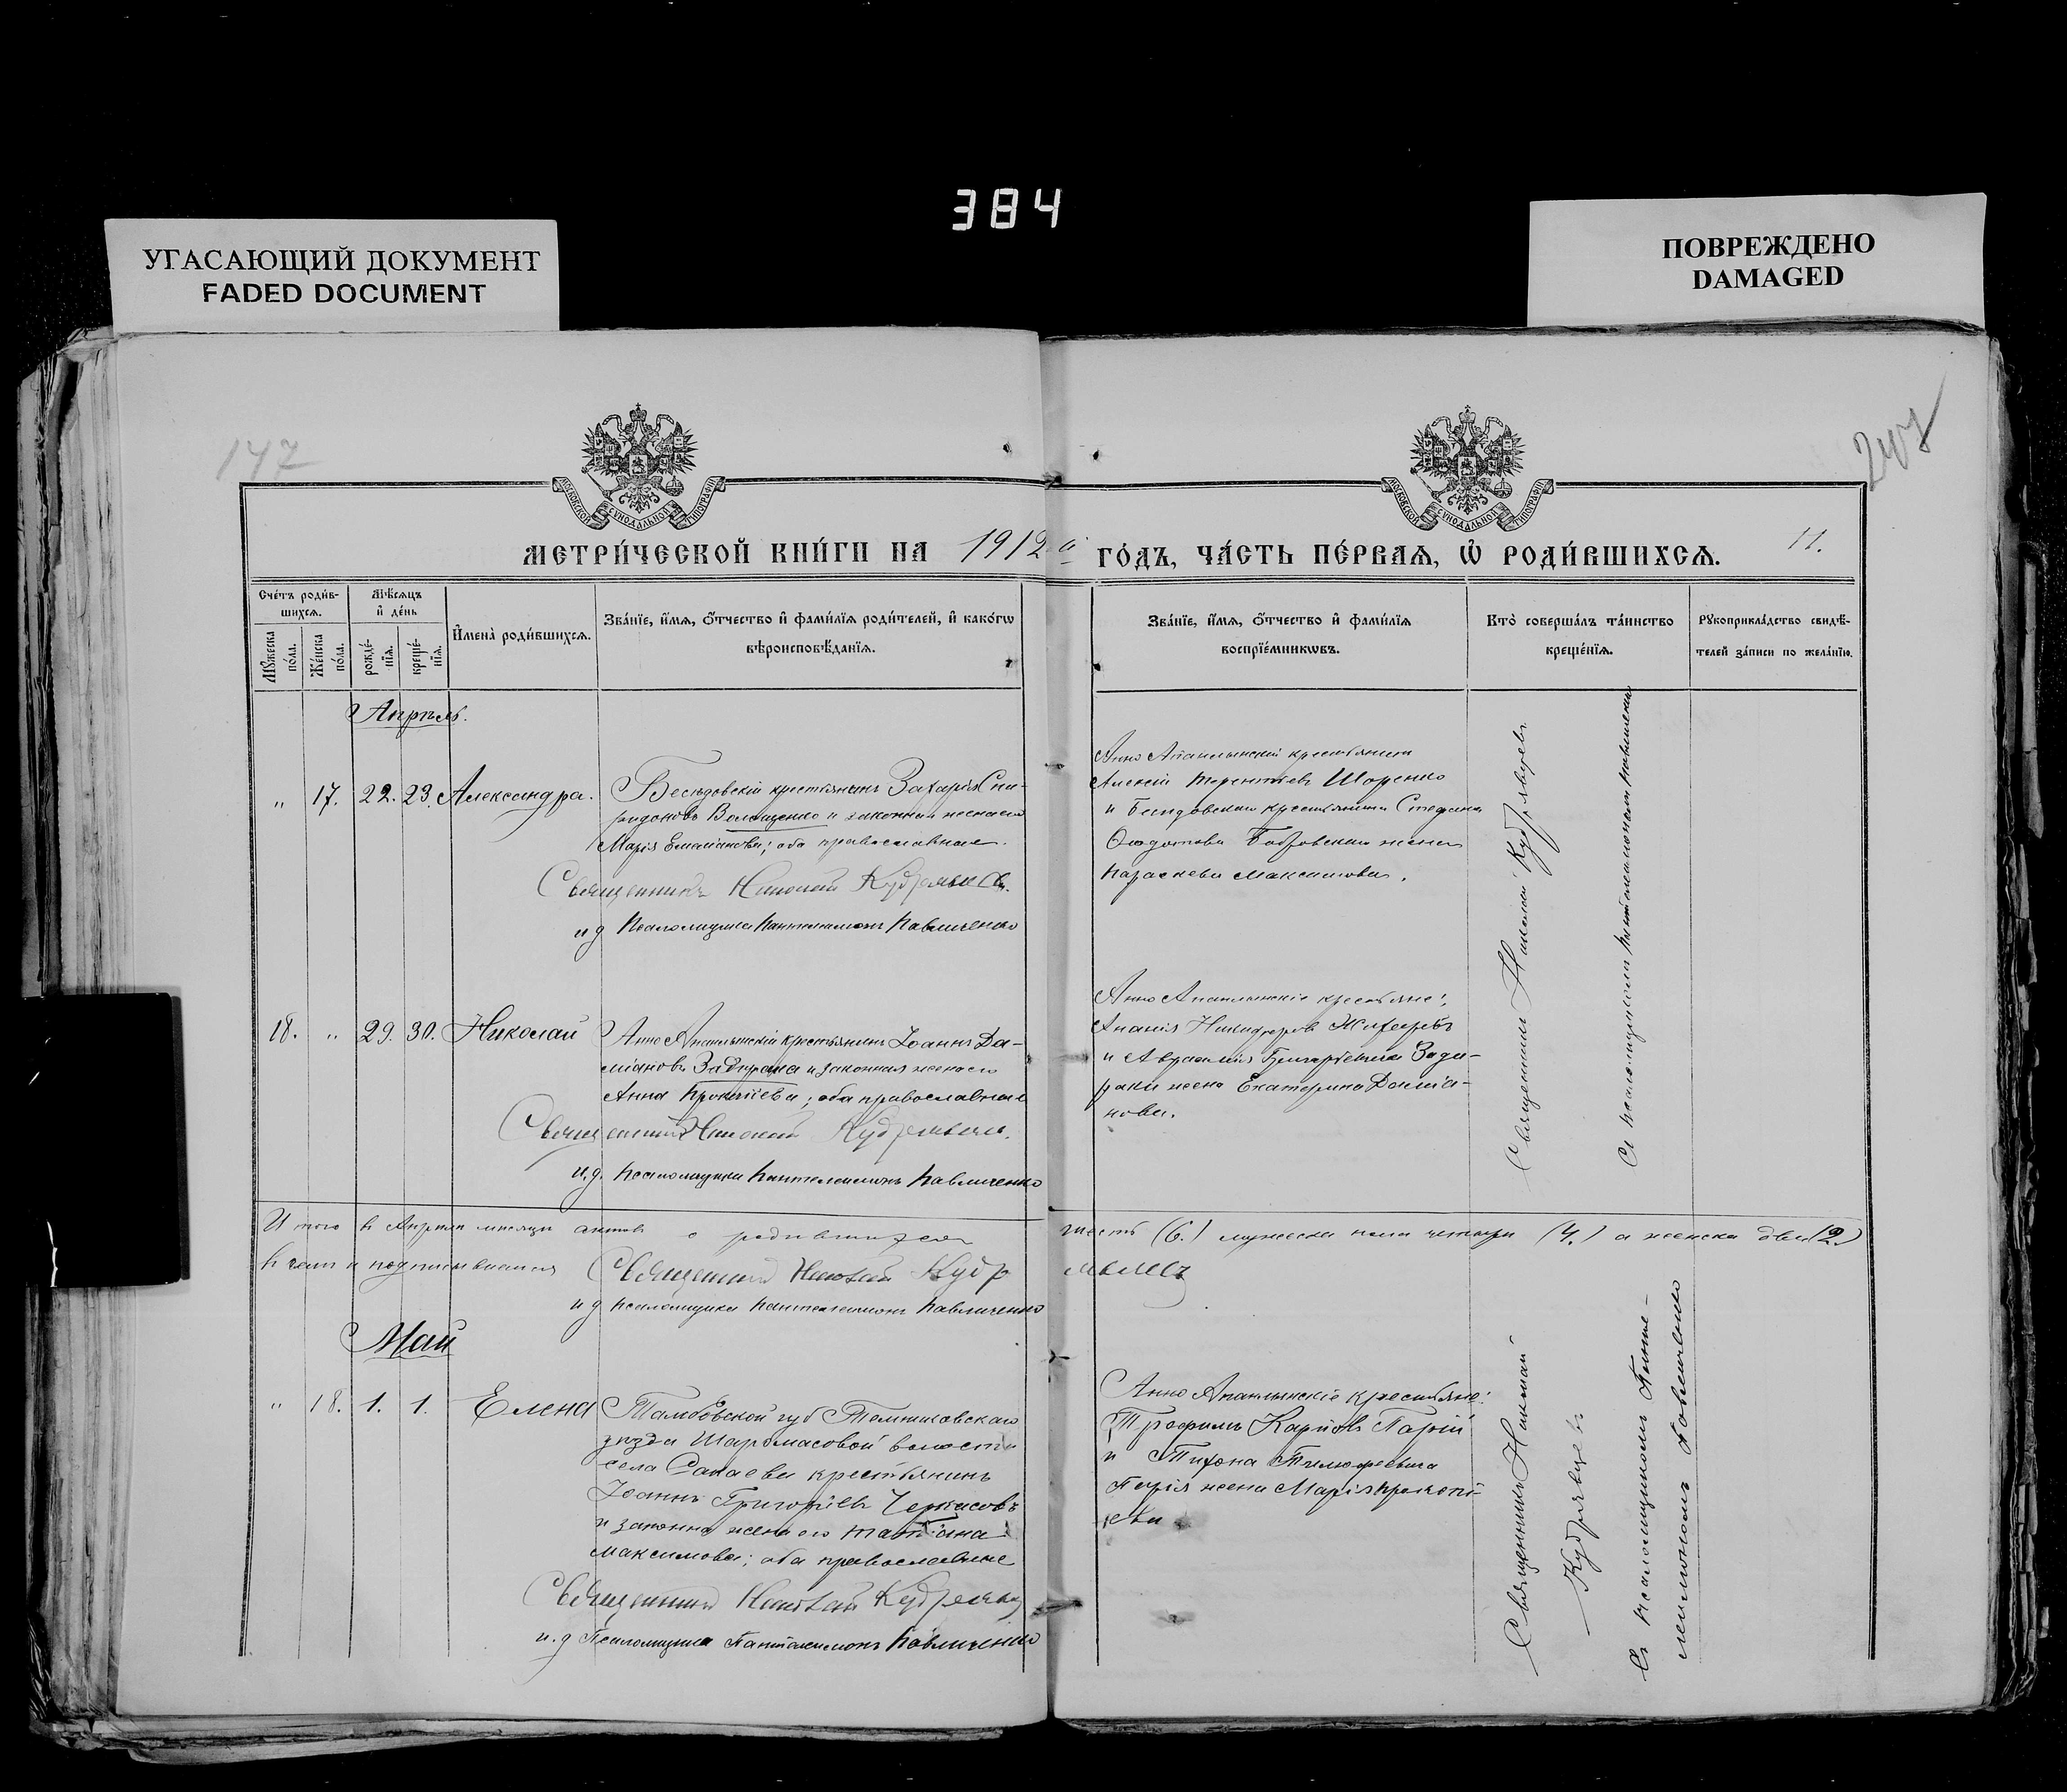 384
УГАСАЮЩИЙ ДОКУМЕНТ
FADED DOCUMENT
ПОВРЕЖДЕНО
DAMAGED
147
207
МОСКОВСКОЙ СѴНОДАЛЬНОЙ ТИПОГРАФІИ
МОСКОВСКОЙ СѴНОДАЛЬНОЙ ТИПОГРАФІИ
МЕТРИ́ЧЕСКОЙ КНИ́ГИ НА 1912 й ГО́ДЪ, ЧА́СТЬ ПЕ́РВАѦ, Ѡ҆ РОДИ́ВШИХСѦ.
11.
Сче́тъ роди́в-
шихсѧ.
Мꙋ́жеска
по́ла.
Же́нска
по́ла.
Мѣ́сѧцъ
и҆ де́нь
рожде́-
нїѧ.
креще́-
нїѧ.
И҆мена̀ роди́вшихсѧ.
Зва́нїе, и҆́мѧ, ѻ҆́тчество и҆ фами́лїѧ роди́телей, и҆ како́гѡ
вѣроисповѣ́данїѧ.
Зва́нїе, и҆́мѧ, ѻ҆́тчество и҆ фами́лїѧ
воспрїе́мникѡвъ.
Кто̀ соверша́лъ та́инство
креще́нїѧ.
Рꙋкоприкла́дство свидѣ́-
телей за́писи по жела́нїю.
Апрѣль.
„ 17. 22. 23. Александра.
Бесѣдовскій крестьянинъ Захарія Спи-
ридоновъ Волощенко и законная жена его
Марія Емеліанова; оба православные.
Священникъ Николай Кудрявцевъ.
и д Псаломщика Пантелеимонъ Павличенко
крестьянинъ
Алексій Терентіевъ Шоренко
и Бесѣдовскаго крестьянина Стефана
Бобровскаго жена
Параскева Максимова.
18. „ 29. 30. Николай
крестьянинъ Іоаннъ Да-
міановъ Задирака и законная жена его
Анна Прокопіева; оба православные
Священникъ Николай Кудрявцевъ.
и.д. Псаломщика Пантелеимонъ Павличенко
крестьяне:
Ананія Никифоровъ
и Григорьевича Зади-
раки жена Екатерина Даміа-
нова.
Священникъ Николай Кудрявцевъ
Съ псаломщикомъ Пантелеимономъ Павличенко
Итого въ Апрѣлѣ мѣсяцѣ актовъ о родившихся шесть (6.) мужеска пола четыре (4.) а женска два (2.)
въ чемъ и подписываемся Священникъ Николай Кудрявцевъ
и д псаломщика Пантелеимонъ Павличенко
Май
„ 18. 1. 1. Елена
Тамбовской губ Темниковскаго
уѣзда волости
села крестьянинъ
Іоаннъ Григоріевъ Черкасовъ
и законная жена его Татіана
Максимова; оба православные
Священникъ Николай Кудрявцевъ
и.д Псаломщика Пантелеимонъ Павличенко
крестьяне:
Трофимъ Карповъ
и Тихона
жена Марія Прокопі-
ева
Священникъ Николай
Кудрявцевъ
Съ псаломщикомъ Панте-
леимономъ Павличенко